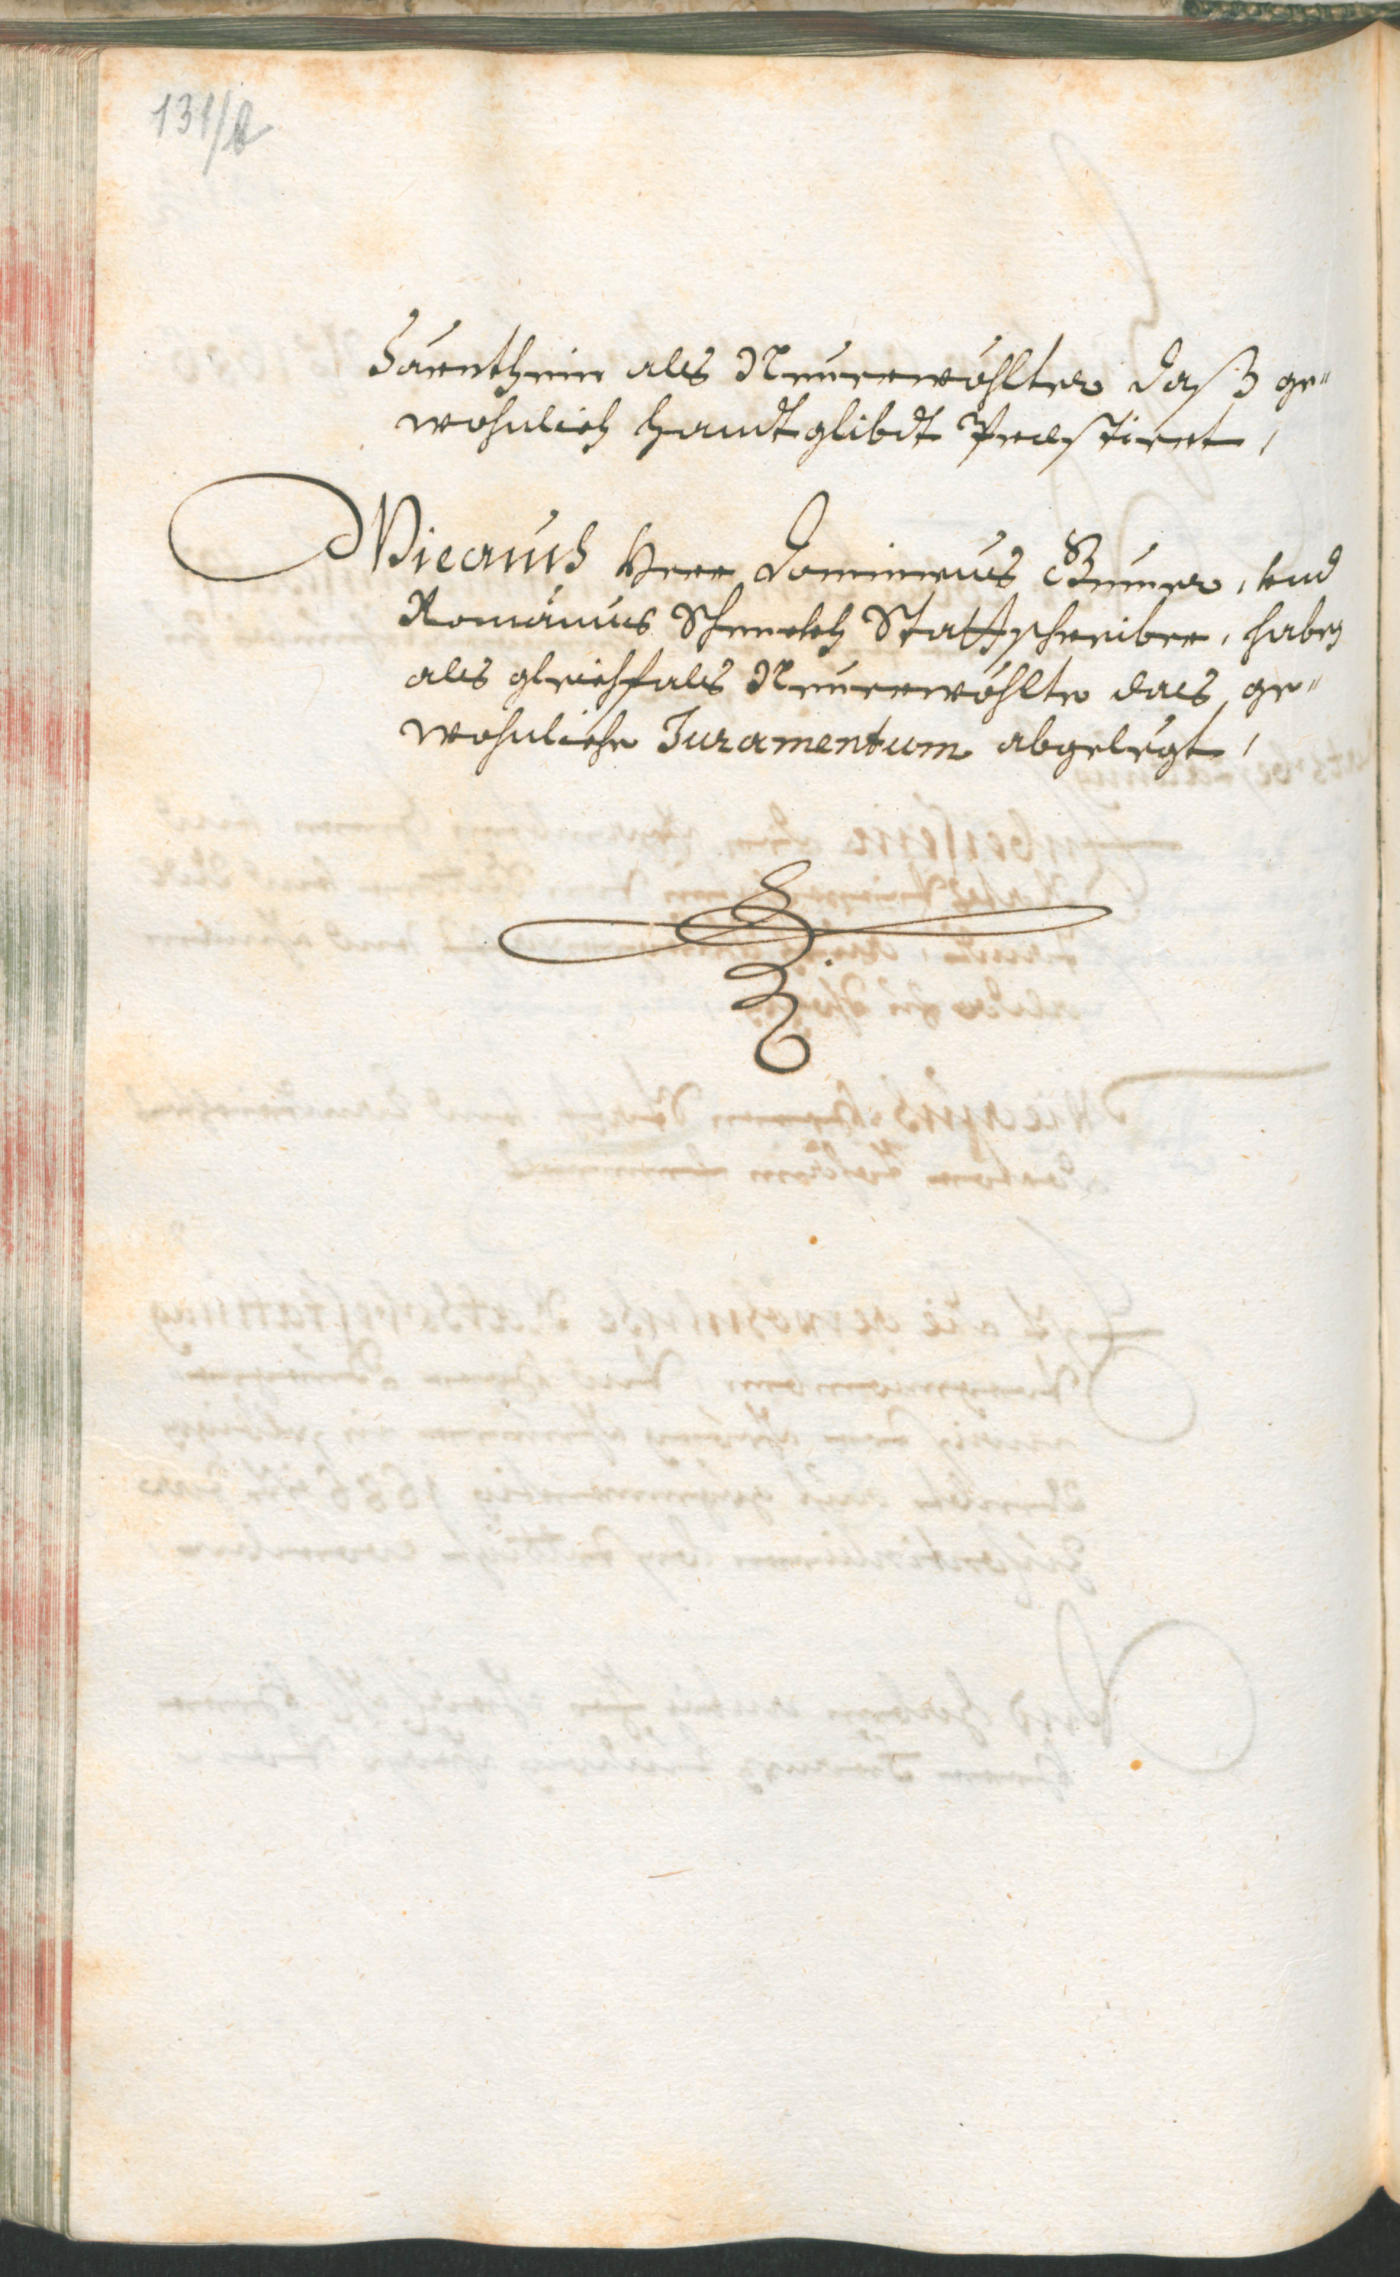 131/b
Särenthein als Neuerwöhlter daß ge-
wohnlich handtglibdt Præstiret,
Wieauch Herr Dominicus Gumer, vnd
Romånus Schenckh Stattschreiber, haben
als gleichfals Neuerwöhlte das ge-
wohnliche Juramentum abgelegt,